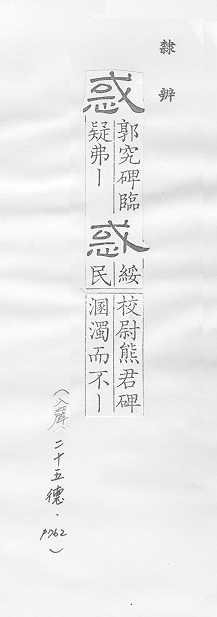 隸辨
惑
郭究碑臨
疑弗｜
惑
綏
民
校尉熊君碑
溷濁而不｜
（入聲．二十五德．P762）